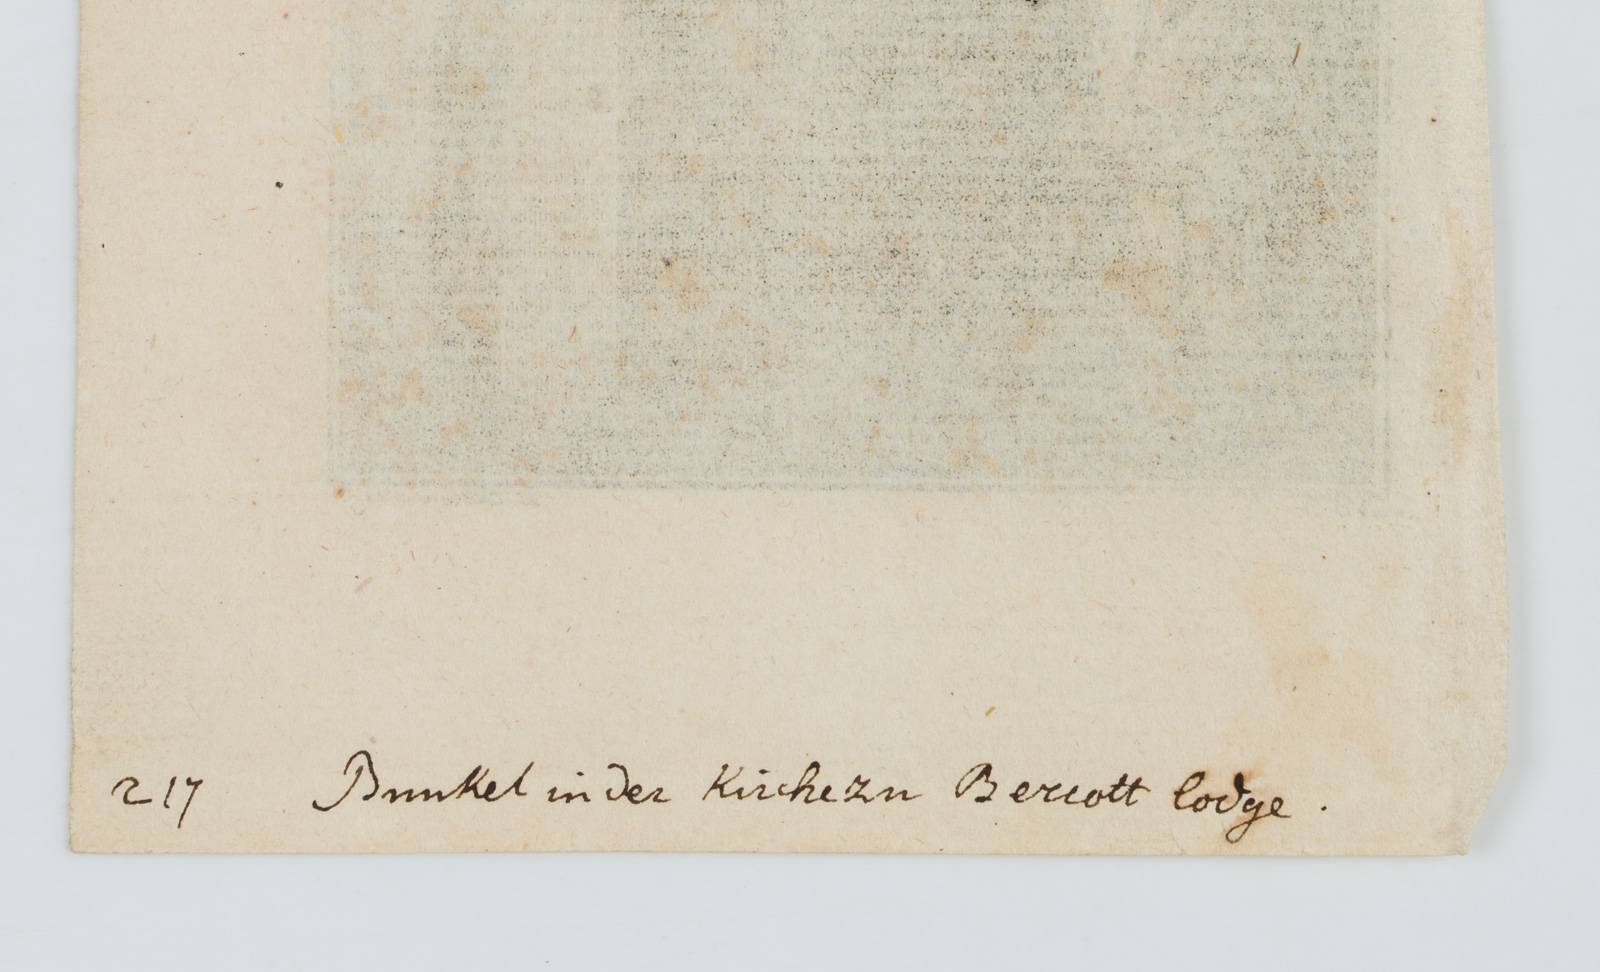 217 Bunkel in der Kirche zu Bercott lodge .